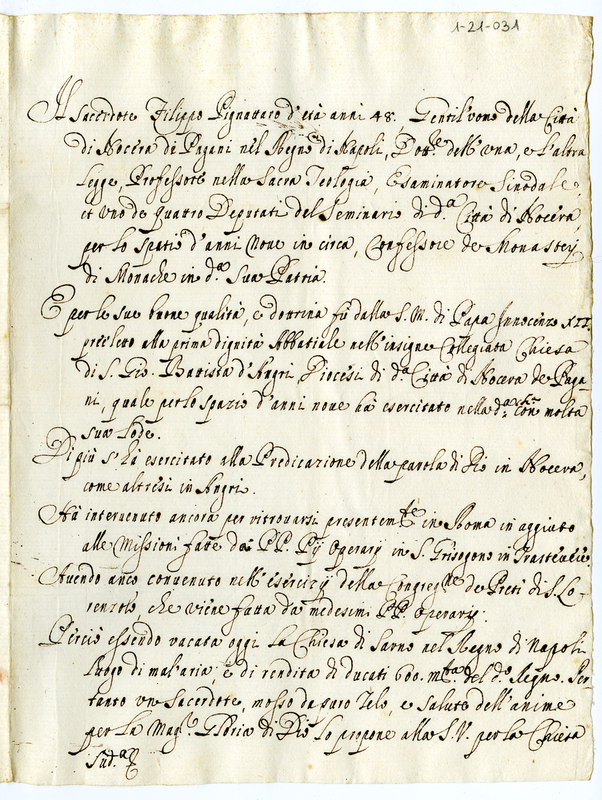 1-21-031
Il Sacerdote Filippo Pignataro d'età anni 48. Gentil'uomo della Città
di Nocera di Pagani nel Regno di Napoli, Dott.re dell'una, e l'altra
legge, Professore nella Sacra Teologia, Esaminatore Sinodale,
et uno de quattro Deputati del Seminario di d.a Città di Nocera
per lo spatio d'anni nove in circa, Confessore de Monasterij
di Monache in d.a sua Patria.
E per le sue buone qualità, e dottrina fù dalla S. M. di Papa Innocenzo XII.
prescelto alla prima dignità Abbatiale nell'insigne Collegiata Chiesa
di S. Gio: Battista d'Angri Diocesi di d.a Città di Nocera de Paga-
ni, quale per lo spazio d'anni nove hà esercitato nella d.a con molta
sua lode.
Di più s'hà esercitato alla Predicazione della parola di Dio in Nocera,
come altresi in Angri.
Hà intervenuto ancora per ritrovarsi presentem.te in Roma in aggiuto
alle Missioni fatte da PP. Pij Operarij in S. Grisogono in Trastevere.
Avendo anco convenuto nell'esercizij della Congreg.ne de Preti di S. Lo-
renzolo, che viene fatta da medesimi PP. Operarij.
Perciò essendo vacata oggi la Chiesa di Sarno nel Regno di Napoli
luogo di mal'aria, e di rendita di ducati 600. m.ta del d.o Regno. Per
tanto un Sacerdote, mosso da puro zelo, e salute dell'anime
per la Mag.r Gloria di Dio lo propone alla S. V. per la Chiesa
sud.a